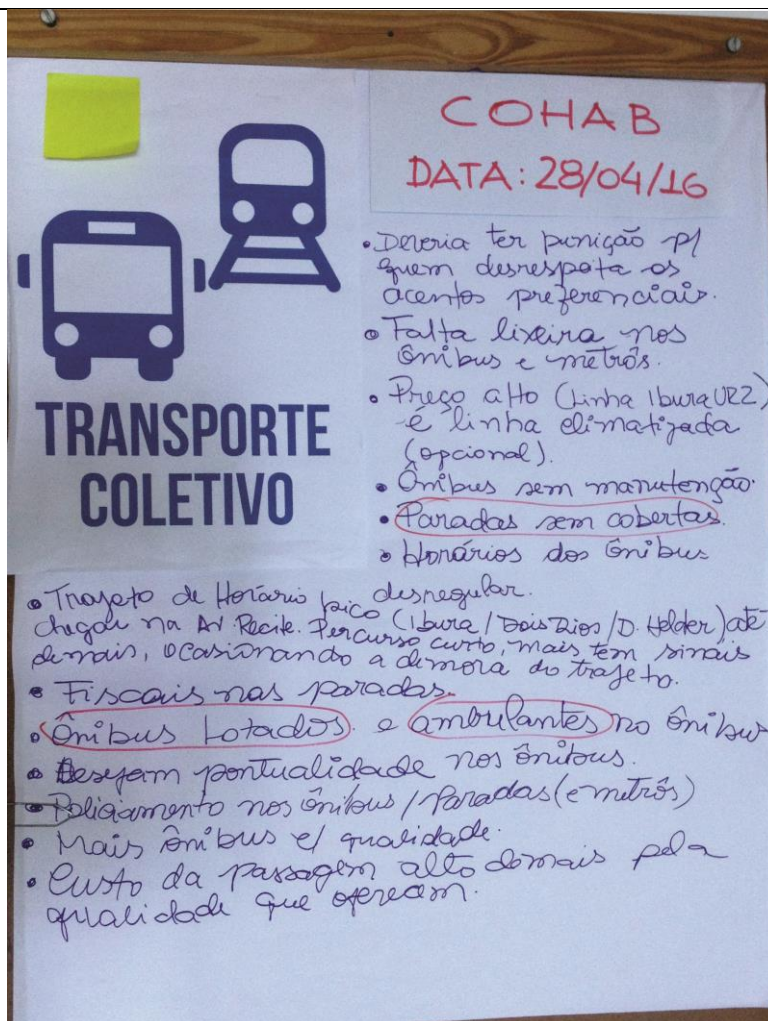 COHAB
DATA: 28/04/16
TRANSPORTE
COLETIVO
• Deveria ter punição p/
quem desrespeita os
acentos preferenciais.
• Falta lixeira nos
ônibus e metrôs.
• Preço alto (Linha Ibura UR2)
é linha climatizada
(opcional).
• Ônibus sem manutenção.
• Paradas sem cobertas.
• Horários dos ônibus
desregular.
• Trajeto de Horário pico (Ibura / Dois Rios / D. Helder) até
chegar na Av. Recife. Percurso curto, mais tem sinais
demais, ocasionando a demora do trajeto.
• Fiscais nas paradas.
• Ônibus Lotados. e ambulantes no ônibus
• Desejam pontualidade nos ônibus.
• Policiamento nos ônibus / Paradas (e metrôs)
• Mais ônibus c/ qualidade.
• Custo da passagem alto demais pela
qualidade que oferecem.